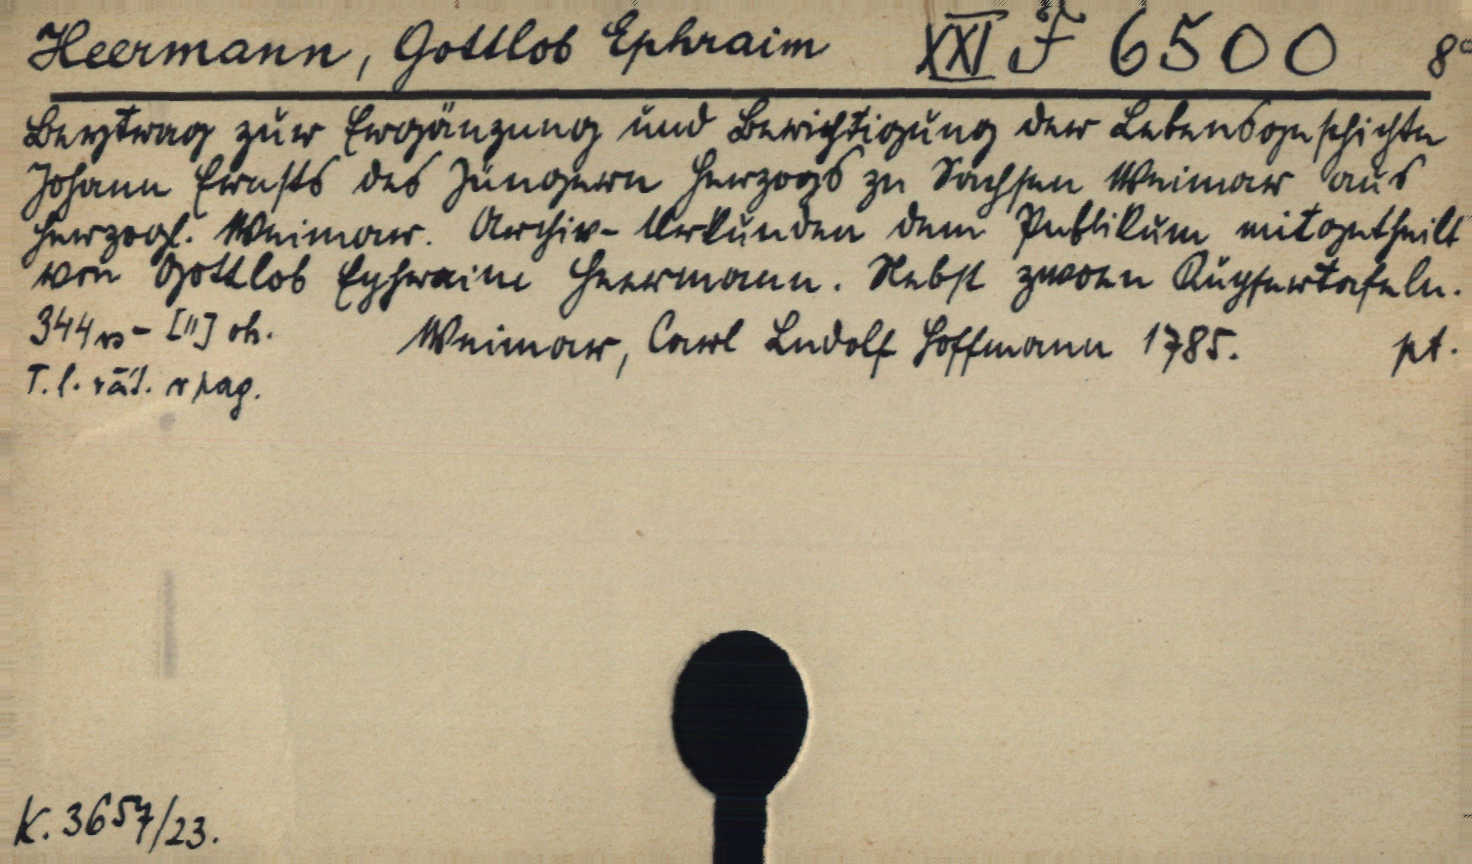 Heermann, Gottlob Ephraim XXI F 6500 8°
Beytrag zur Ergänzung und Berichtigung der Lebensgeschichte
Johann Ernsts des Jüngern Herzogs zu Sachsen Weimar aus
Herzogl. Weimar. Archiv-Urkunden dem Publikum mitgetheilt
von Gottlob Ephraim Heermann. Nebst zwoen Kupfertafeln.
344 [11] Weimar, Carl Ludolf Hoffmann 1785. pt.
T. l.
K. 3657/23.